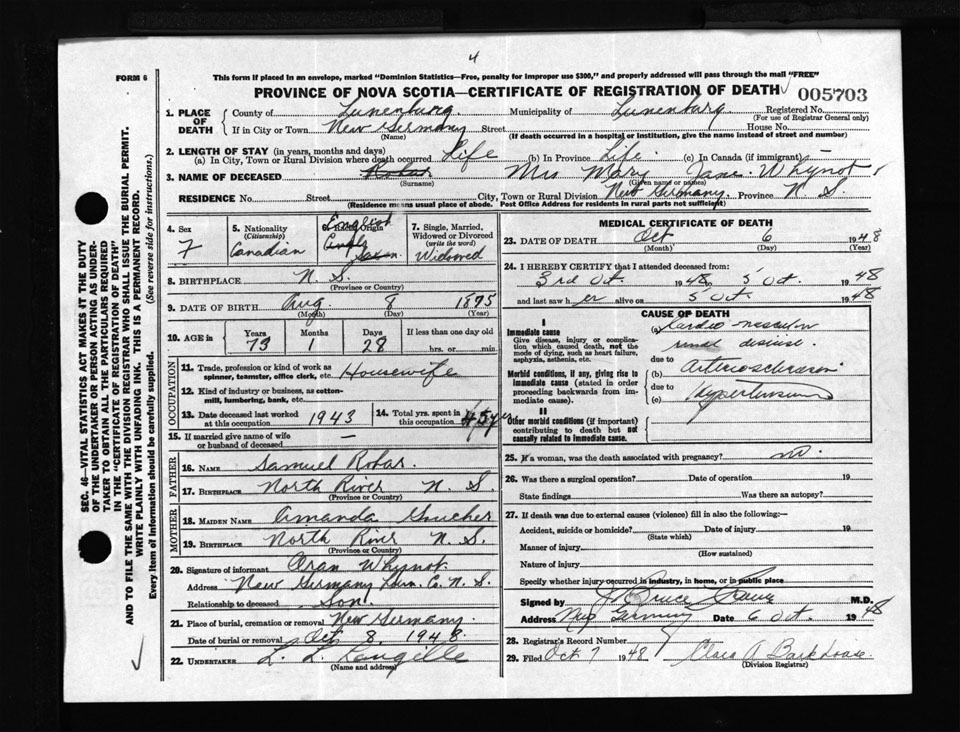 4
FORM 6
This form if placed in an envelope, marked "Dominion Statistics—Free, penalty for improper use $300," and properly addressed will pass through the mail "FREE"
PROVINCE OF NOVA SCOTIA—CERTIFICATE OF REGISTRATION OF DEATH 005703
1. PLACE OF DEATH
County of Lunenburg Municipality of Lunenburg Registered No.
(For use of Registrar General only)
If in City or Town New Germany Street House No.
(Name) (If death occurred in a hospital or institution, give the name instead of street and number)
2. LENGTH OF STAY (in years, months and days)
(a) In City, Town or Rural Division where death occurred Life (b) In Province Life (c) In Canada (if immigrant) —
3. NAME OF DECEASED Robar Mrs. Mary Jane Whynot
(Surname) (Given name or names)
RESIDENCE No. Street City, Town or Rural Division New Germany Province N. S.
(Residence means usual place of abode. Post Office Address for residents in rural parts not sufficient)
4. Sex
F
5. Nationality
(Citizenship)
Canadian
English
6. Racial Origin
7. Single, Married, Widowed or Divorced
(write the word)
Widowed
8. BIRTHPLACE N. S.
(Province or Country)
9. DATE OF BIRTH Aug 8 1875
(Month) (Day) (Year)
10. AGE in
Years Months Days If less than one day old
73 1 28 hrs. or min.
OCCUPATION
11. Trade, profession or kind of work as spinner, teamster, office clerk, etc. Housewife
12. Kind of industry or business, as cotton-mill, lumbering, bank, etc.
13. Date deceased last worked at this occupation 1943
14. Total yrs. spent in this occupation 45 yrs
15. If married give name of wife or husband of deceased —
FATHER
16. NAME Samuel Robar
17. BIRTHPLACE North River N. S.
(Province or Country)
MOTHER
18. MAIDEN NAME Amanda Goucher
19. BIRTHPLACE North River N. S.
(Province or Country)
20. Signature of informant Oran Whynot
Address New Germany Lun. C. N. S.
Relationship to deceased Son.
21. Place of burial, cremation or removal New Germany
Date of burial or removal Oct 8, 1948
22. UNDERTAKER L. L. Langille
(Name and address)
MEDICAL CERTIFICATE OF DEATH
23. DATE OF DEATH Oct 6 1948
(Month) (Day)
24. I HEREBY CERTIFY that I attended deceased from:
3rd Oct. 1948 to 5 Oct. 1948
and last saw her alive on 5 Oct. 1948
CAUSE OF DEATH
I
Immediate cause
Give disease, injury or complication which caused death, not the mode of dying, such as heart failure, asphyxia, asthenia, etc.
(a) Cardio-vascular
renal disease
due to
Morbid conditions, if any, giving rise to immediate cause (stated in order proceeding backwards from immediate cause).
(b) Arteriosclerosis
due to
(c) Hypertension
II
Other morbid conditions (if important) contributing to death but not causally related to immediate cause.
25. If a woman, was the death associated with pregnancy? no.
26. Was there a surgical operation? Date of operation 19
State findings Was there an autopsy?
27. If death was due to external causes (violence) fill in also the following:—
Accident, suicide or homicide? Date of injury 19
(State which)
Manner of injury
(How sustained)
Nature of injury
Specify whether injury occurred in industry, in home, or in public place
Signed by J. Bruce M.D.
Address New Germany Date 6 Oct. 1948
28. Registrar's Record Number
29. Filed Oct 7 1948 Clara A Barkhouse
(Division Registrar)
SEC. 46—VITAL STATISTICS ACT MAKES IT THE DUTY
OF THE UNDERTAKER OR PERSON ACTING AS UNDER-
TAKER TO OBTAIN ALL THE PARTICULARS REQUIRED
IN THE "CERTIFICATE OF REGISTRATION OF DEATH"
AND TO FILE THE SAME WITH THE DIVISION REGISTRAR WHO SHALL ISSUE THE BURIAL PERMIT.
WRITE PLAINLY WITH UNFADING INK. THIS IS A PERMANENT RECORD.
Every item of information should be carefully supplied. (See reverse side for instructions.)